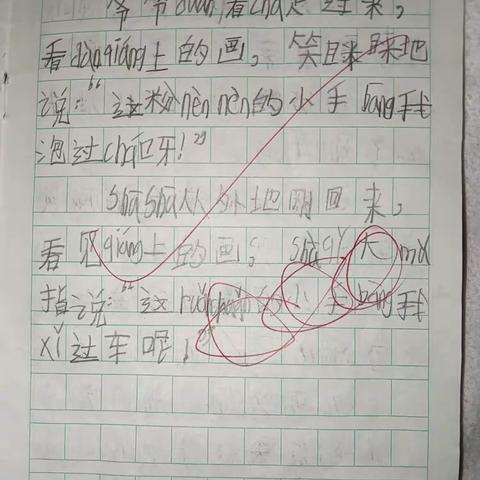 爷爷duān着chá走过来，
看dào qiáng上的画，笑眯眯地
说：“这粉nèn nèn的小手bāng我
泡过chá呀！”
shū shu从外地刚回来，
看见qiáng上的画，shù qǐ大mǔ
指说：“这ruǎn 小手bāng我
xǐ过车呢！”